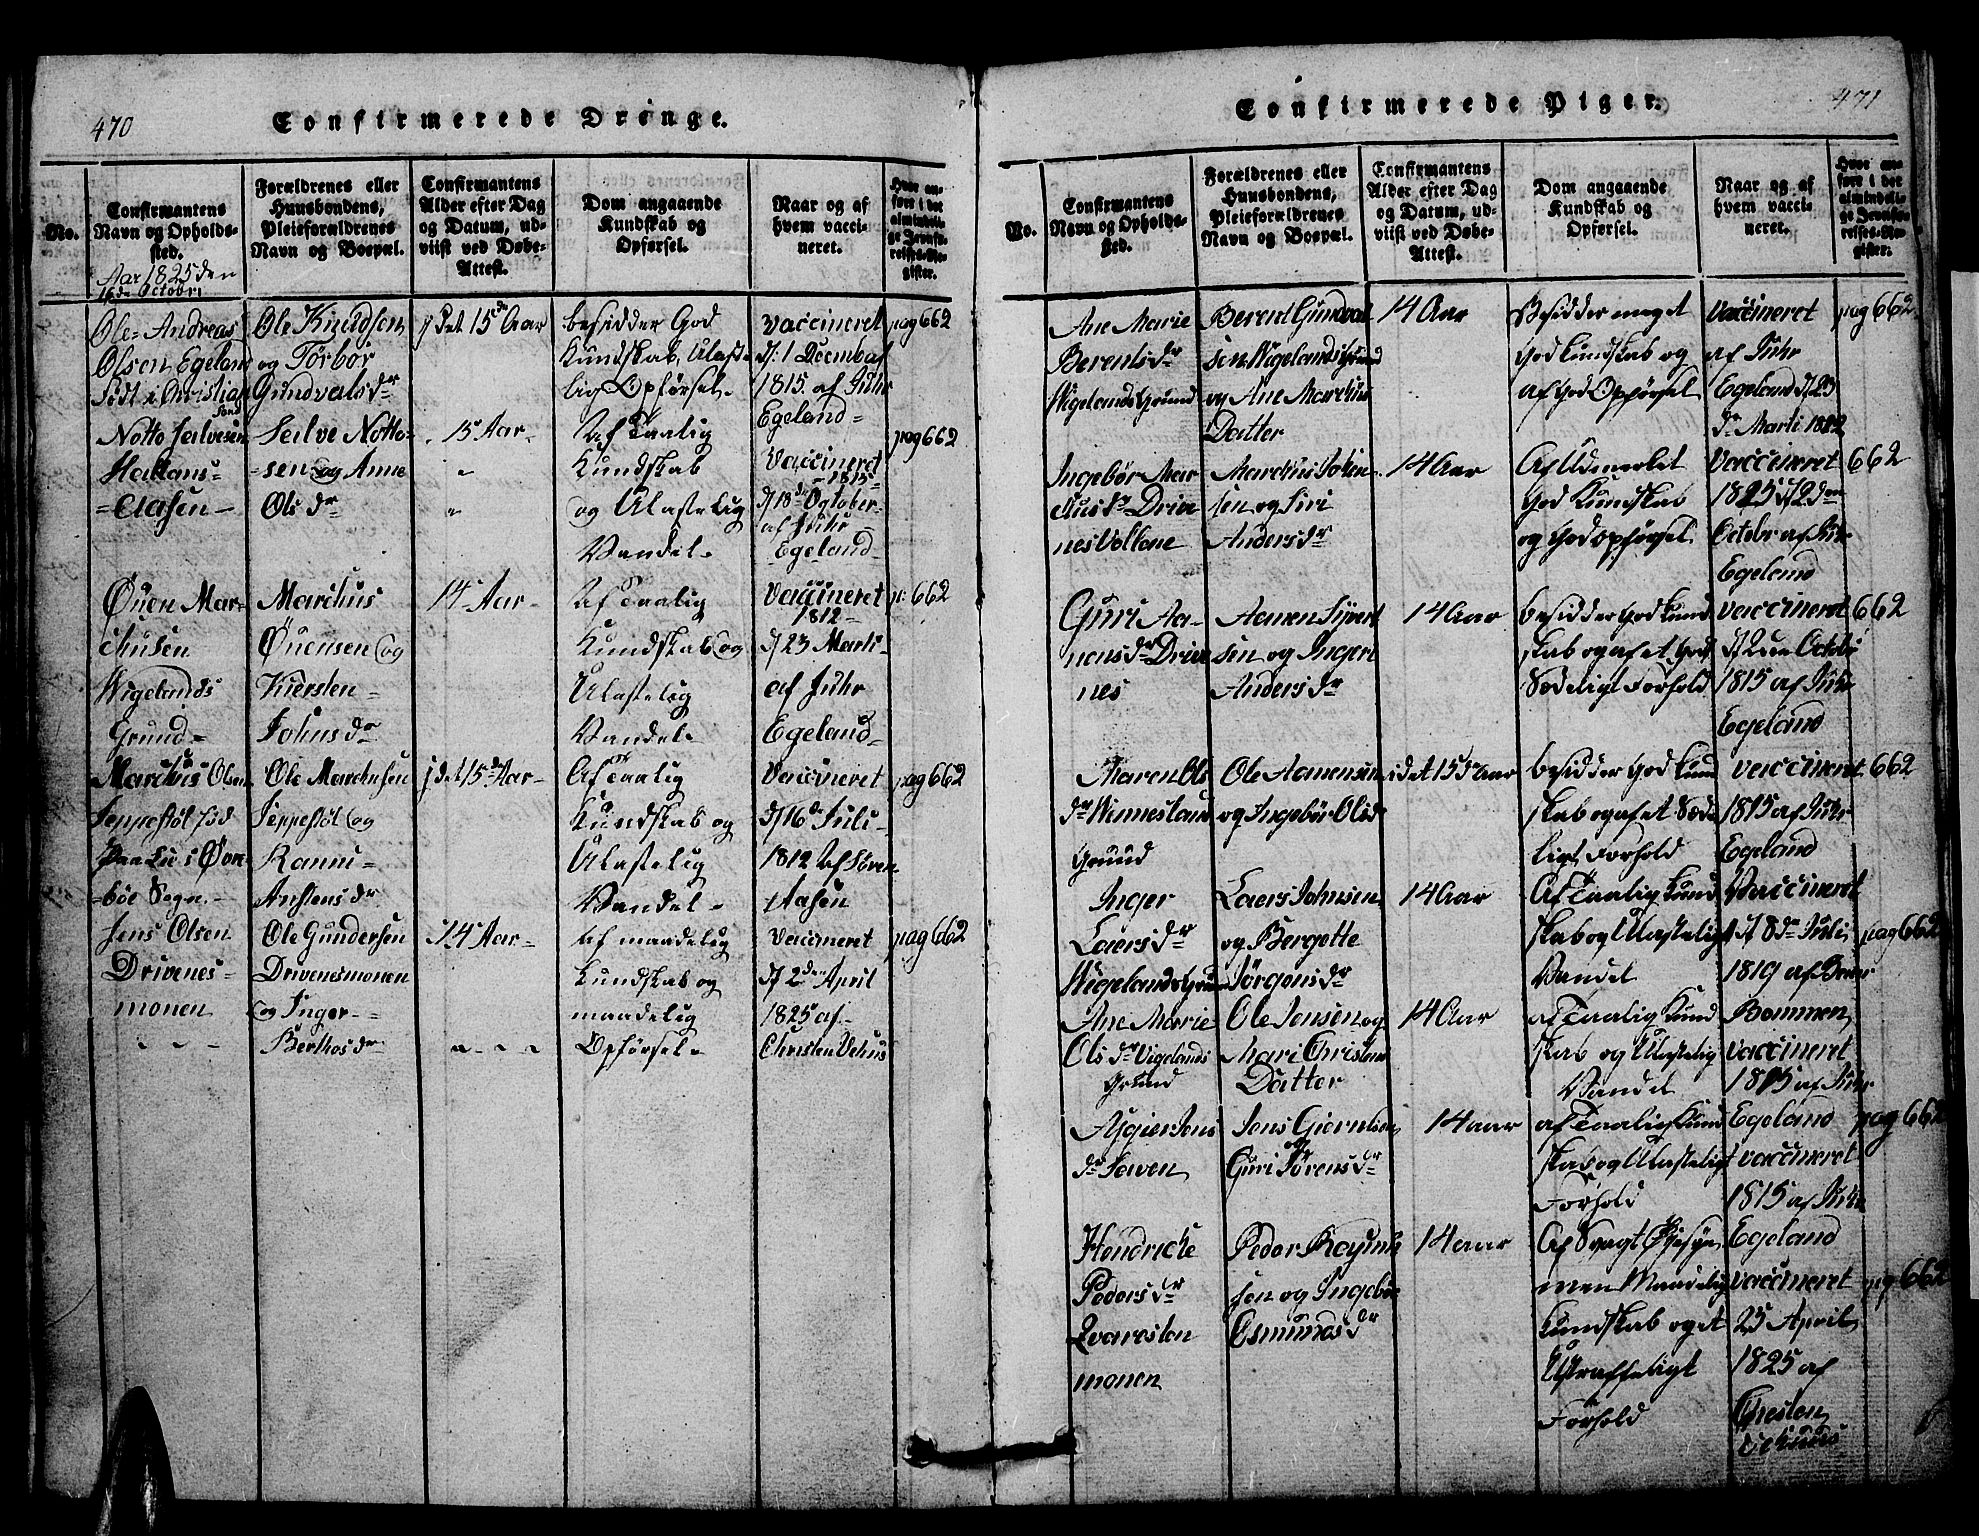 470
Confirmerede Drenge.
No.
Confirmantens
Navn og Opholds-
sted.
Forældrenes eller
Huusbondens,
Pleieforældrenes
Navn og Boepæl.
Confirmantens
Alder efter Dag
og Datum, ud-
viist ved Døbe-
Attest.
Dom angaaende
Kundskab og
Opførsel.
Naar og af
hvem vacci-
neret.
Hvor an-
føre i det
almindeli-
ge Jevnfø-
relses-Re-
gister.
Aar 1825 den
16de Octobr
Ole Andreas
Olsen Egeland
Født i Christian
sand
Ole Knudsen
og Torbor
Gundvalsdr
i det 15de Aar
besidder God
Kundskab, Ulaste-
lig Opførsel-
Vaccineret
d: 1 Decemb af
1815. af Juhr
Egeland-
pag 662
Notto Seilvesen
Hallans-
=Aasen-
Seilve Notto-
=sen og Anne
Ols dr
15 Aar-
Af taalig
Kundskab
og Ulastelig
Vandel-
Vaccineret
-1815-
d 18de October-
af Juhr
Egeland-
pag 662
Øuen Mar-
thusen
Wigelands
Grund-
Marthus
Øuensen og
Kiersten-
Johns dr
14 Aar-
Af Taalig
Kundskab og
Ulastelig
Vandel-
Vaccineret
1812-
d 23 Marti-
af Juhr
Egeland-
p: 662
Marthus Olsen
Jeppestøl fød
paa Lie i Øvre-
=bøe Sogn.-
Ole Marthusen
Jeppestøl og
Ranni-
Anstensdr
i det 15de Aar-
Af Taalig
Kundskab og
Ulastelig
Vandel-
Vaccineret
d 16de Juli-
1812 Af Søren
Aasen
pag 662
Jens Olsen
Drivenes-
monen
Ole Gundersen
Drivenesmonen
og Inger--
Berthosdr
14 Aar-
Af maadelig
Kundskab og
maadelig
Opførsel-
Vaccineret
d 2den April
1825 af-
Christen Vehus
pag 662
471
Confirmerede Piger.
No.
Confirmantens
Navn og Opholds-
sted.
Forældrenes eller
Huusbondens,
Pleieforældrenes
Navn og Boepæl.
Confirmantens
Alder efter Dag
og Datum, ud-
viist ved Døbe-
Attest.
Dom angaaende
Kundskab og
Opførsel.
Naar og af
hvem vacci-
neret.
Hvor an-
føre i det
almindeli-
ge Jevnfø-
relses-Re-
gister.
Ane Marie
Berents dr
Wigelands Grund
Berent Gundval
sen Wigelands Grund
og Ane Marthus
Datter
14 Aar
Besidder meget
God Kundskab og
af God Opførsel
Vaccineret
af Juhr
Egeland d 23
de Marti 1812
pag 662
Ingebør Mar
thus dr Drive
nes Vollene
Marthus John
sen og Siri
Anders dr
14 Aar
Af Udmerket
God Kundskab
og God opførsel
Vaccineret
1825 d 2den
Octobr af Juhr
Egeland
662
Guri Aa-
nens dr Drive
nes
Aanen Sivert
sen og Ingeri
Anders dr
14 Aar
besidder God Kund
skab og af et Godt
Sædeligt Forhold
Vaccineret
d 2den Octobr
1815 af Juhr
Egeland
662
Maren Ols
dr Winnesland
Grund
Ole Aanensen
og Ingebør Olsdr
i det 15de aar
besidder God Kund
skab og af et Sæde
ligt Forhold
Vaccineret
1815 af Juhr
Egeland
662
Inger
Laers dr
Wigelands Grund
Laers Johnsen
og Bergette
Jørgens dr
14 Aar
Af Taalig Kund
skab og Ulastelig
Vandel
Vaccineret
d 8de Juli
1819 af
Bommen
pag 662
Ane Marie
Ols dr Vigelands
Grund
Ole Jensen og
Mari Christens
Datter
14 Aar
af Taalig Kund
skab og Ulastelig
Vandel
Vaccineret
1815 af Juhr
Egeland
pag 662
Asgier Jens
dr Seven
Jens Gieruldsen
og
Guri Sørens dr
14 aar
af Taalig Kund
skab og Ulasteligt
Forhold
Vaccineret
1815 af Juhr
Egeland
Hendricke
Peders dr
Qvaresten
monen
Peder Rasmus
sen og Ingebør
Osmunds dr
14 aar
Af Svagt Øiesyn
men Maadelig
Kundskab og et
Ustraffeligt
Forhold
Vaccineret
25 April
1825 af
Christen
Vehuus
pag 662